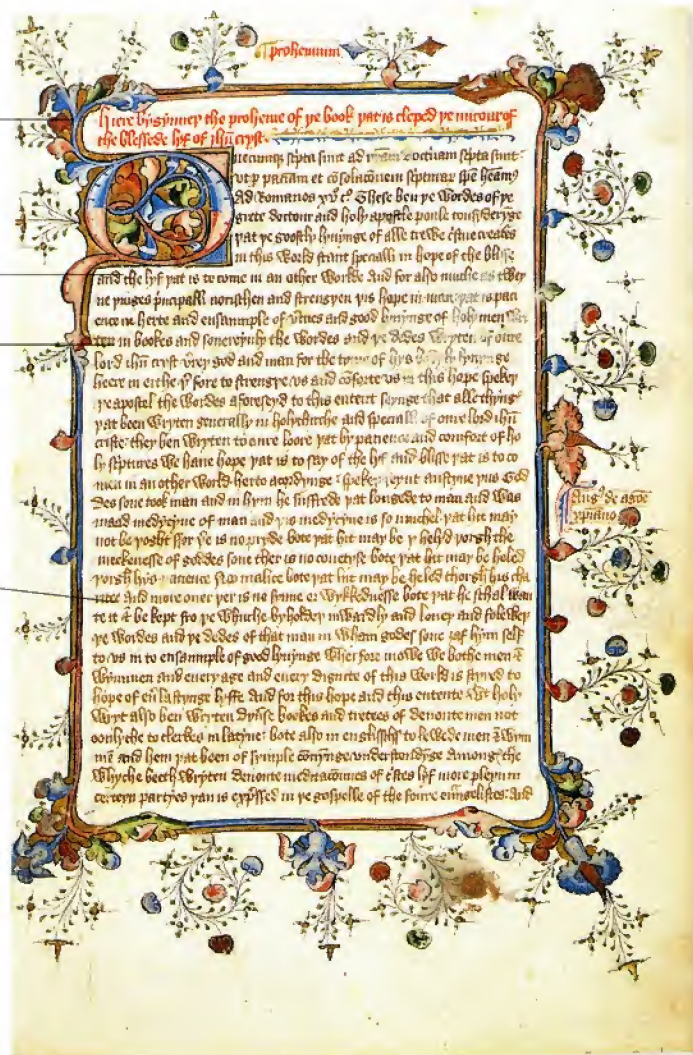 prohemium
Here bygynneþ the proheme of þe book þat is cleped þe mirour of
the blessede lyf of ihū cryst
Quecumq; scpta sunt ad nr̄am doctrinam scpta sunt
vt p̄ paciam et cōsolacōnem scpturar spē heamꝰ
ad Romanos xvͦ cͦ These ben þe Wordes of þe
grete doctour and holy apostle poule consideryge
þat þe goostly lyuynge of alle trewe cr̄istne creatēs
in this World stant specially in hope of the blisse
and the lyf þat is to come in an other Worlde And for also muche as twey
ne þinges p̄ncipally norisshen and strengþen þis hope in man þat is paci
ence in herte and ensaumple of v̄tues and good lyuynge of holy men Wry
ten in bookes and souereynly the Wordes and þe dedes Wryten of oure
lord ihū cryst v̄rey god and man for the tyme of hys bodyly lyuynge
heere in erthe þͬ fore to strengþe vs and cōforte vs in this hope spekeþ
þe apostel the Wordes aforeseyd to this entent seynge that alle thynges
þat been Wryten generally in holychirche and specially of oure lord ihū
criste they ben Wryten to oure loore þat by pacience and comfort of ho
ly scptures We haue hope þat is to say of the lyf and blisse þat is to co
men in an other World herto acordynge spekeþ seynt austyne þus God
des sone took man and in hym he suffrede þat longede to man and Was
maad medycyne of man and þis medycyne is so muchel þat hit may
not be þoght ffor þͬ is no pryde bote þat hit may be y helyd þorgh the
mekenesse of goddes sone ther is no couetyse bote þat hit may be heled
þorgh hys pacience No malice bote þat hit may be heled thorgh his cha
ritee And more ouer þer is no synne or Wykkednesse bote þat he schal Wan
te it & be kept fro þe Whuche byholdeþ inWardly and loueþ and foleWeþ
þe Wordes and þe dedes of that man in Wham godes sone ȝaf hym self
to vs in to ensaumple of good lyuynge Wher fore noWe We bothe men &
Wymmen and euery age and euery dignite of this World is styred to
hope of eū lastynge lyffe And for this hope and this entente Wt holy
Wryt also ben Wryten dyūse bookes and tretees of deuoute men not
oonlyche to clerkes in latyne bote also in englisshe to leWede men & Wym
mē and hem þat been of symple cōnynge vnderstondyge Among the
Whyche beeth Wryten deuoute meditacōunes of cr̄istes lyf more pleyn in
certeyn partyes þan is exp̄ssed in þe gospelle of the foure eūngelistes And
Aug⁹ de agoē
xp̄iano